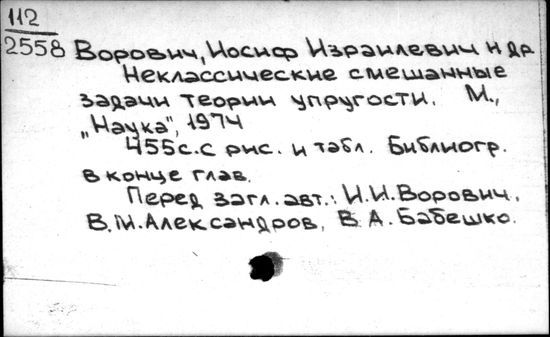 112
2558 Ворович, Иосиф Израилевич и др
Неклассические смешанные
задачи теории упругости. М.,
„Наука", 1974
455с. с рис. и табл. Библиогр.
в конце глав.
Перед загл. авт.: И.И. Ворович,
В.М. Александров, В.А. Бабешко.